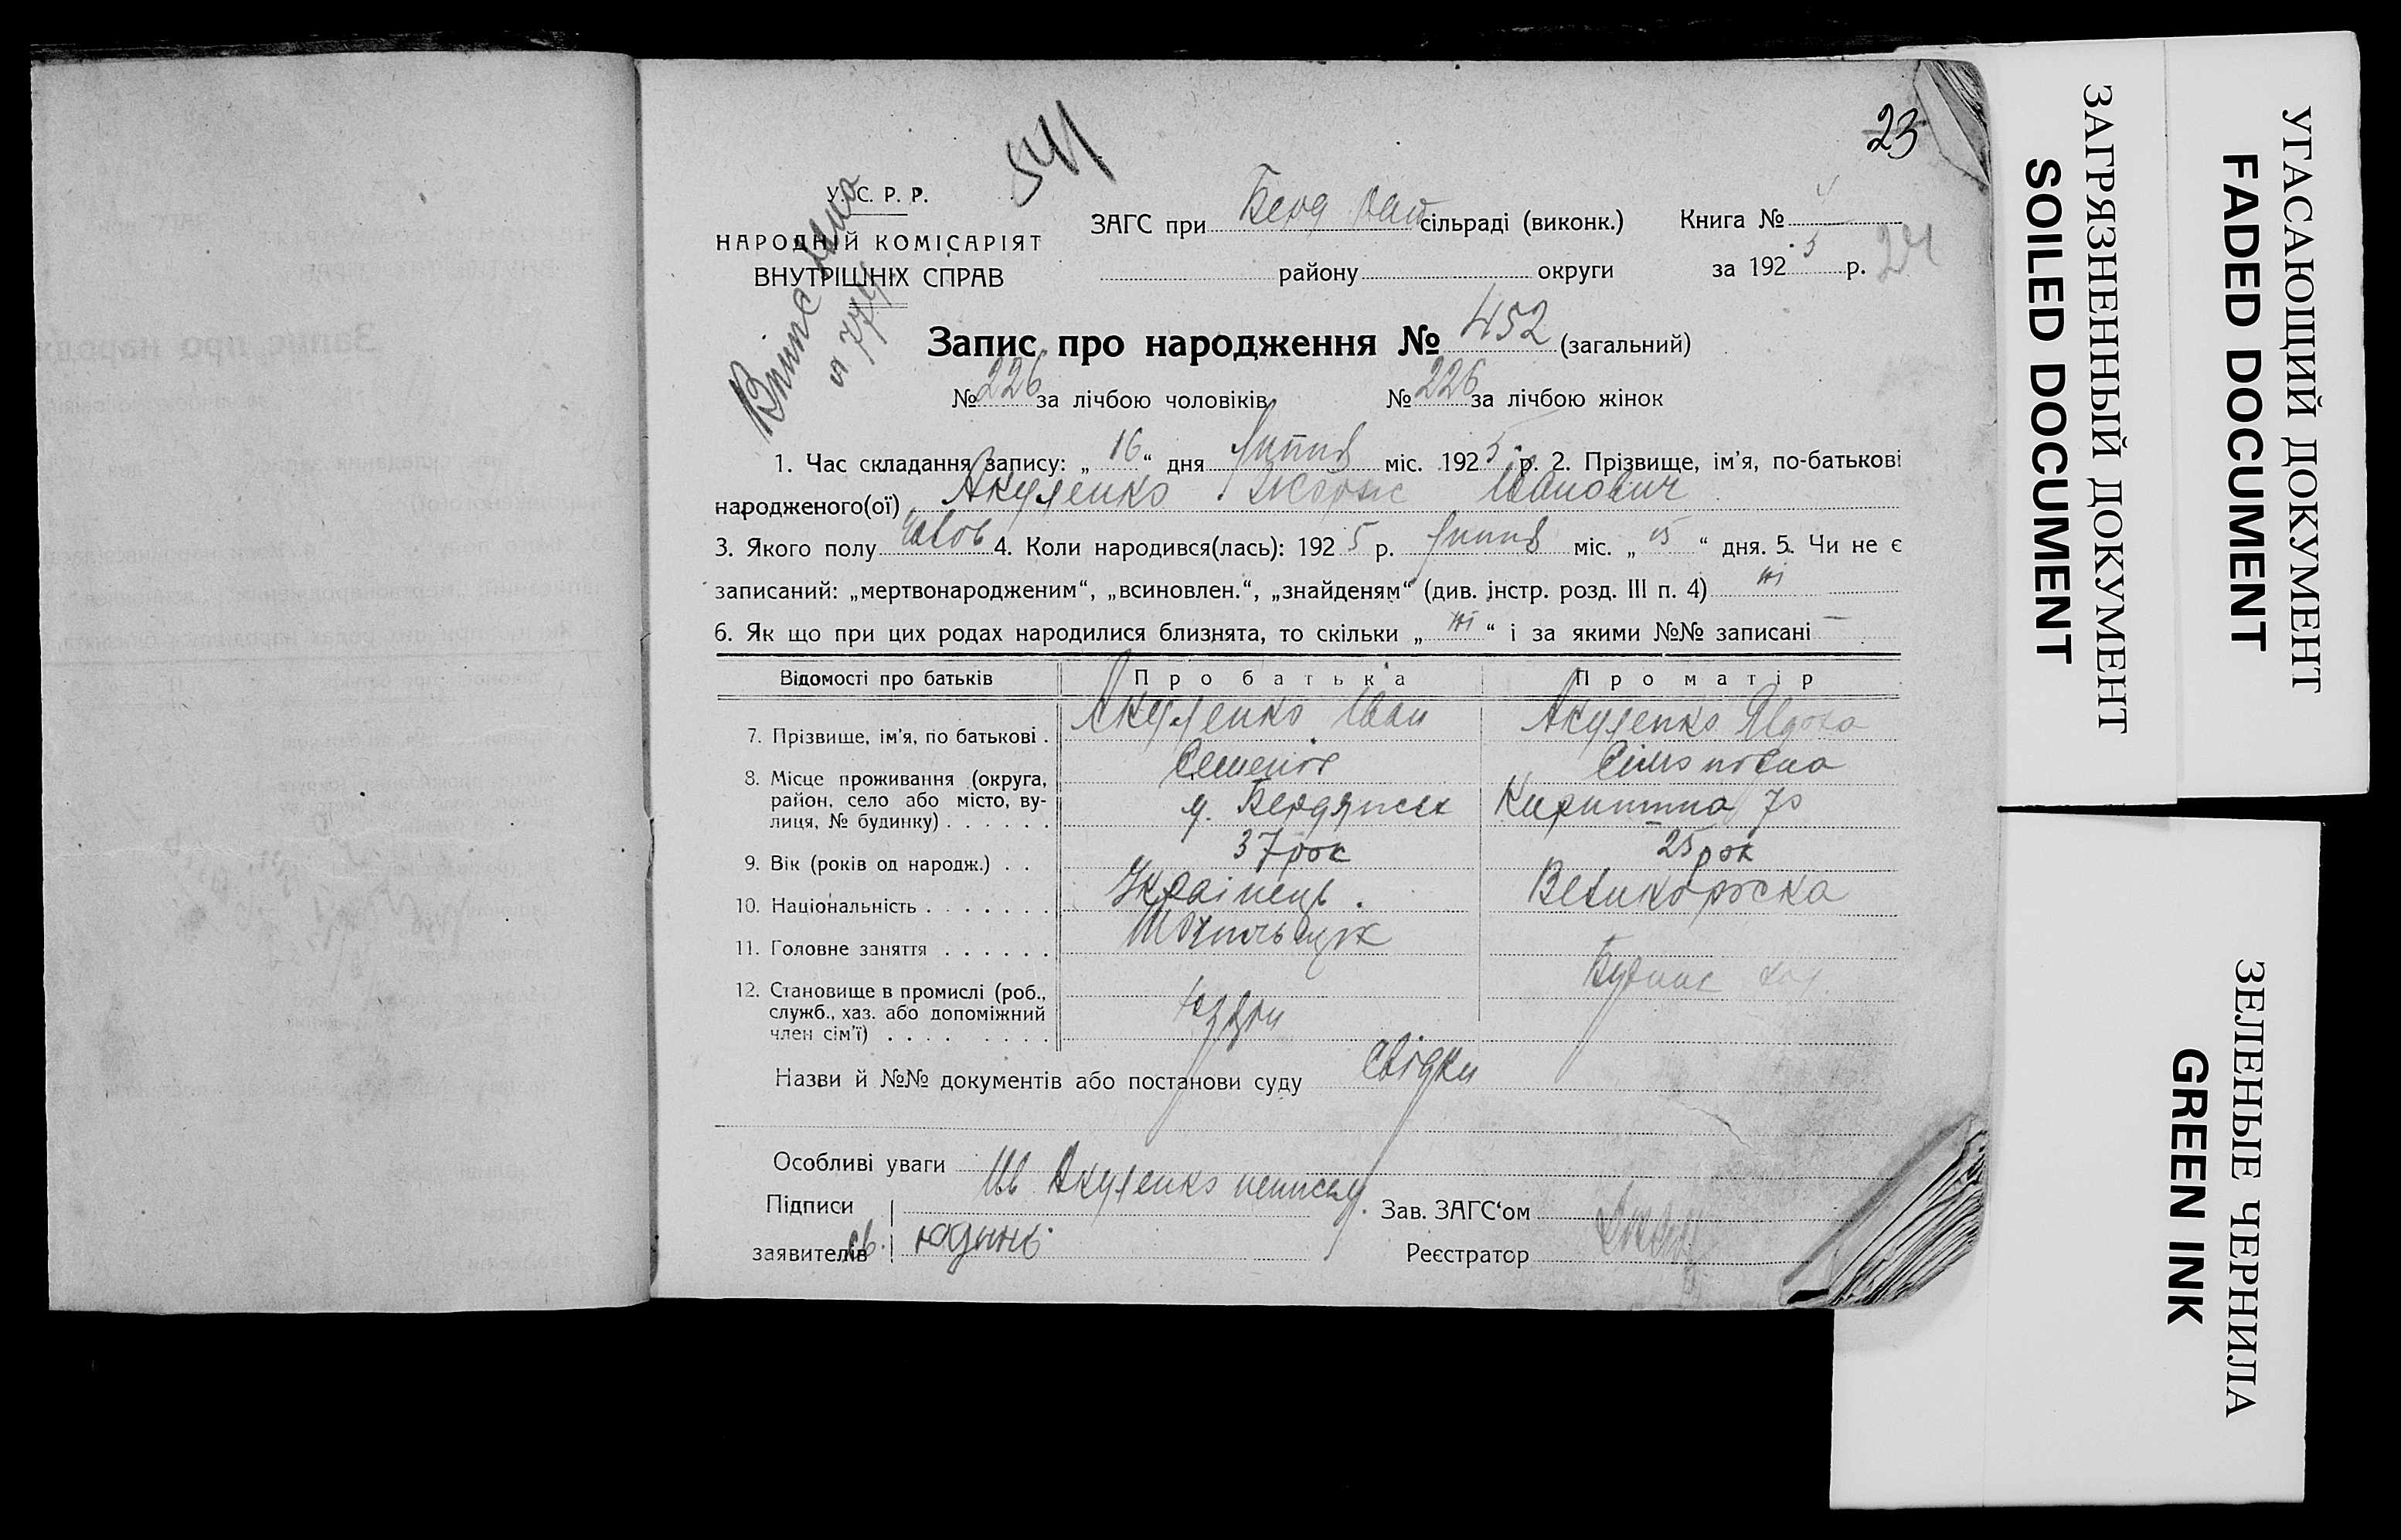 23
541
У. С. Р. Р.
НАРОДНІЙ КОМІСАРІЯТ
ВНУТРІШНІХ СПРАВ
ЗАГС при Берд сільраді (виконк.)
району округи
Книга № 4
за 192 5 р.
24
Запис про народження № 452 (загальний)
№ 226 за лічбою чоловіків № 226 за лічбою жінок
1. Час складання запису: „ 16 “ дня Липня міс. 192 5 р. 2. Прізвище, ім’я, по-батькові
народженого(ої) Акуленко Іванович
3. Якого полу 4. Коли народився(лась): 192 5 р. Липня міс. „ 15 “ дня. 5. Чи не є
записаний: „мертвонародженим“, „всиновлен.“, „знайденям“ (див. інстр. розд. III п. 4) ні
6. Як що при цих родах народилися близнята, то скільки „ ні “ і за якими №№ записані —
Відомості про батьків Про батька Про матір
7. Прізвище, ім’я, по батькові . Акуленко Іван Акуленко Явдоха
Семенів
8. Місце проживання (округа,
район, село або місто, ву-
лиця, № будинку) . . . . . . м. Бердянськ 70
9. Вік (років од народж.) . . 37 рок 25 рок
10. Національність . . . . . . . Українець. Великороска
11. Головне заняття . . . . . .
12. Становище в промислі (роб.,
служб., хаз. або допоміжний
член сім’ї) . . . . . . . .
Назви й №№ документів або постанови суду свідки
Особливі уваги
Ив Акуленко неписм.
Підписи
заявителів св.
Зав. ЗАГС‘ом
Реєстратор
ЗАГРЯЗНЕННЫЙ ДОКУМЕНТ
SOILED DOCUMENT
УГАСАЮЩИЙ ДОКУМЕНТ
FADED DOCUMENT
ЗЕЛЕНЫЕ ЧЕРНИЛА
GREEN INK